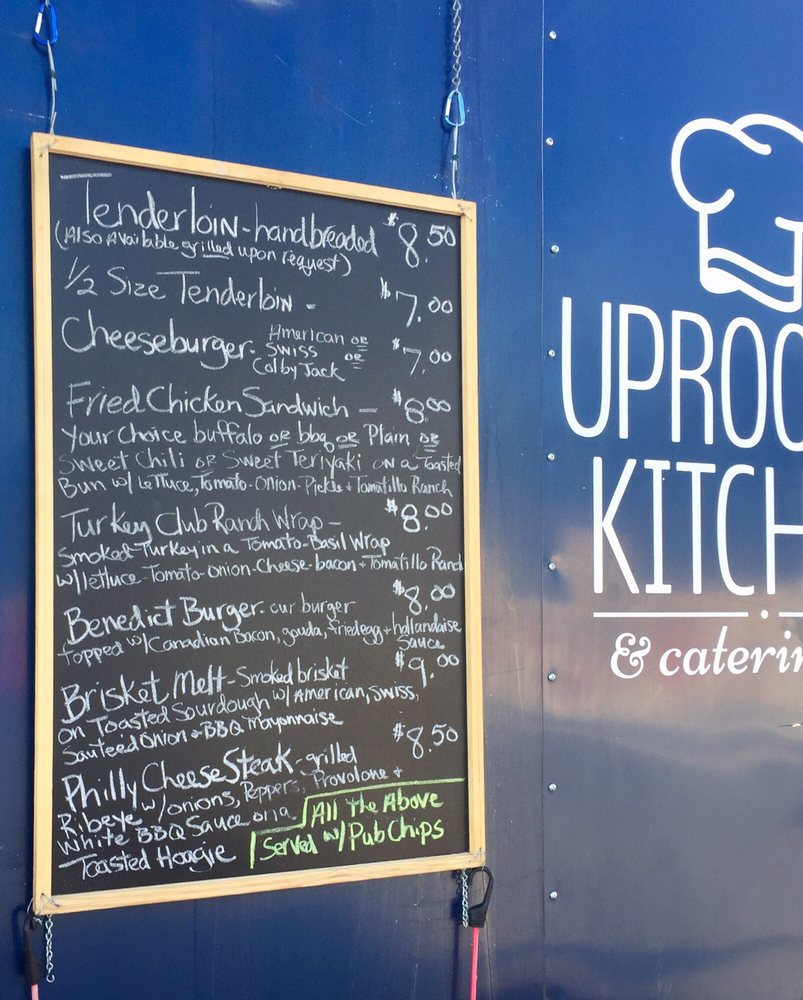 Tenderloin - hand breaded $8.50
(Also Available grilled upon request)
1/2 Size Tenderloin - $7.00
Cheeseburger - American or
Swiss or
Colby Jack $7.00
Fried Chicken Sandwich - $8.00
Your Choice buffalo or bbq or Plain or
Sweet Chili or Sweet Teriyaki on a Toasted
Bun w/ Lettuce, Tomato-Onion-Pickle + Tomatillo Ranch
Turkey Club Ranch Wrap - $8.00
Smoked Turkey in a Tomato-Basil Wrap
w/ lettuce-Tomato-onion-Cheese-bacon + Tomatillo Ranch
Benedict Burger - our burger $8.00
topped w/ Canadian Bacon, gouda, fried egg + hollandaise
Sauce
Brisket Melt - Smoked brisket $9.00
on Toasted Sourdough w/ American, Swiss,
Sauteed Onion + BBQ Mayonnaise
Philly Cheese Steak - grilled $8.50
Ribeye w/ onions, Peppers, Provolone +
White BBQ Sauce on a
Toasted Hoagie
All The Above
Served w/ Pub Chips
UPROO
KITCH
& caterin